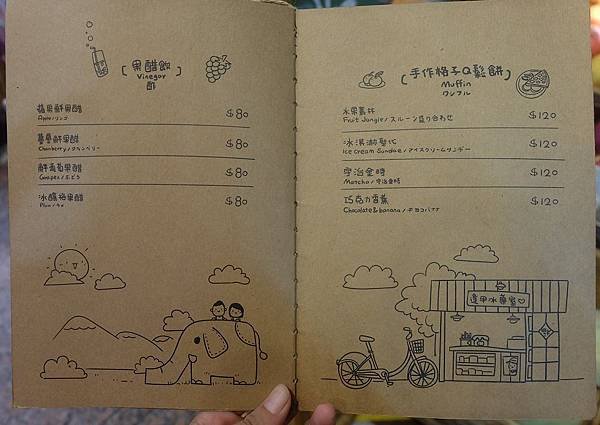 果醋飲
Vinegar
酢
蘋果鮮果醋
Apple/リンゴ
$80
蔓蔓鮮果醋
Cranberry/クランベリー
$80
鮮萄萄果醋
Grapes/ぶどう
$80
冰釀梅果醋
Plum/うめ
$80
手作格子Q鬆餅
Muffin
ワッフル
水果叢林
Fruit Jungle/フルーツ盛り合わせ
$120
冰淇淋聖代
Ice cream Sundae/アイスクリームサンデー
$120
宇治金時
Matcha/宇治金時
$120
巧克力香蕉
Chocolate&banana/チョコバナナ
$120
逢甲冰菓室